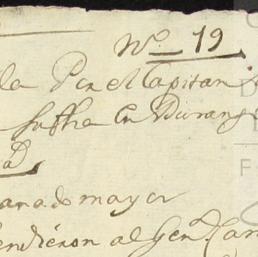 No. 19
la Por el Capitan
su fha en Durang
anado mayor
endieron al Genl.